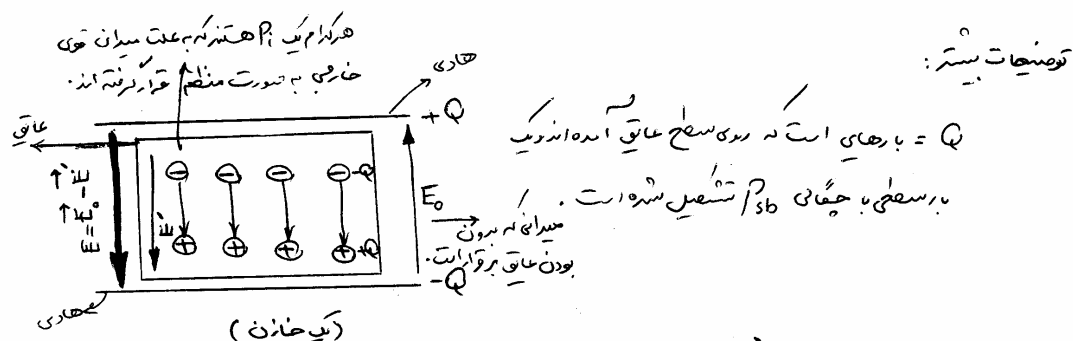 توضیحات بیشتر:
Q = بارهایی است که روی سطح عایق آمده اند و یک
بار سطحی با چگالی ρsb تشکیل شده است.
هرکدام یک Pi هستند که به علت میدان قوی
خارجی به صورت منظم قرار گرفته اند.
هادی
+Q
عایق
-Q
E₀
میدانی که بدون
بودن عایق برقرار است.
+Q
-Q
هادی
(یک خازن)